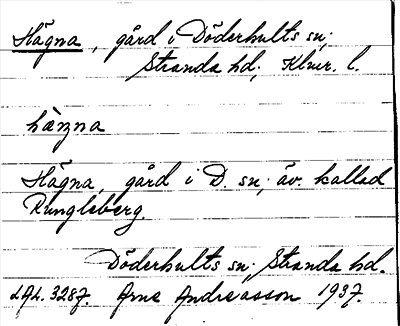 Hägna, gård i Döderhults sn;
Stranda hd; Klmr. l.
hä̀ŋna
Hägna, gård i D. sn; äv. kallad
Rungleberg.
Döderhults sn; Stranda hd.
LAL. 3287. Arne Andreasson 1937.